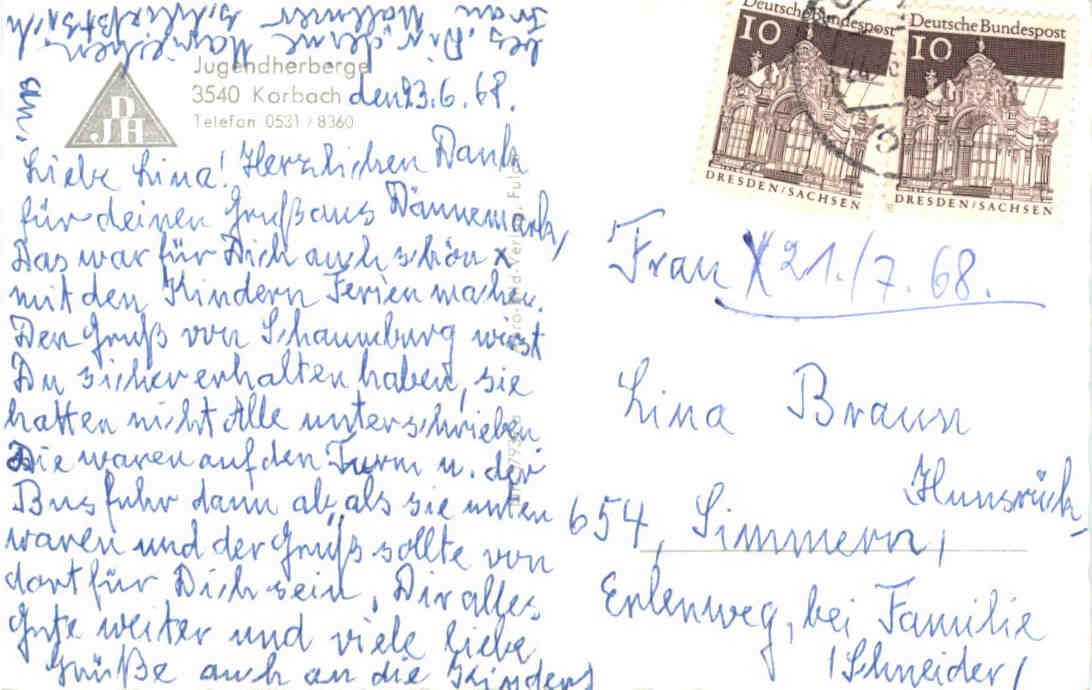 Jugendherberge
3540 Korbach den 23.6.68.
Telefon 0531/8360
DJH
Liebe Lina! Herzlichen Dank
für deinen Gruß aus Dännemark,
Das war für Dich auch schön
mit den Kindern Ferien machen.
Der Gruß von Schaumburg wirst
Du sicher erhalten haben, sie
hatten nicht Alle unterschrieben
Die waren auf den Turm u. der
Bus fuhr dann ab, als sie unten
waren und der Gruß sollte von
dort für Dich sein, Dir alles
Gute weiter und viele liebe
Grüße auch an die Kinder
Frau
Deutsche Bundespost
10
DRESDEN/SACHSEN
Deutsche Bundespost
10
DRESDEN/SACHSEN
Frau X 21./7.68.
Lina Braun
Hunsrück,
654, Simmern,
Erlenweg, bei Familie
(Schneider)